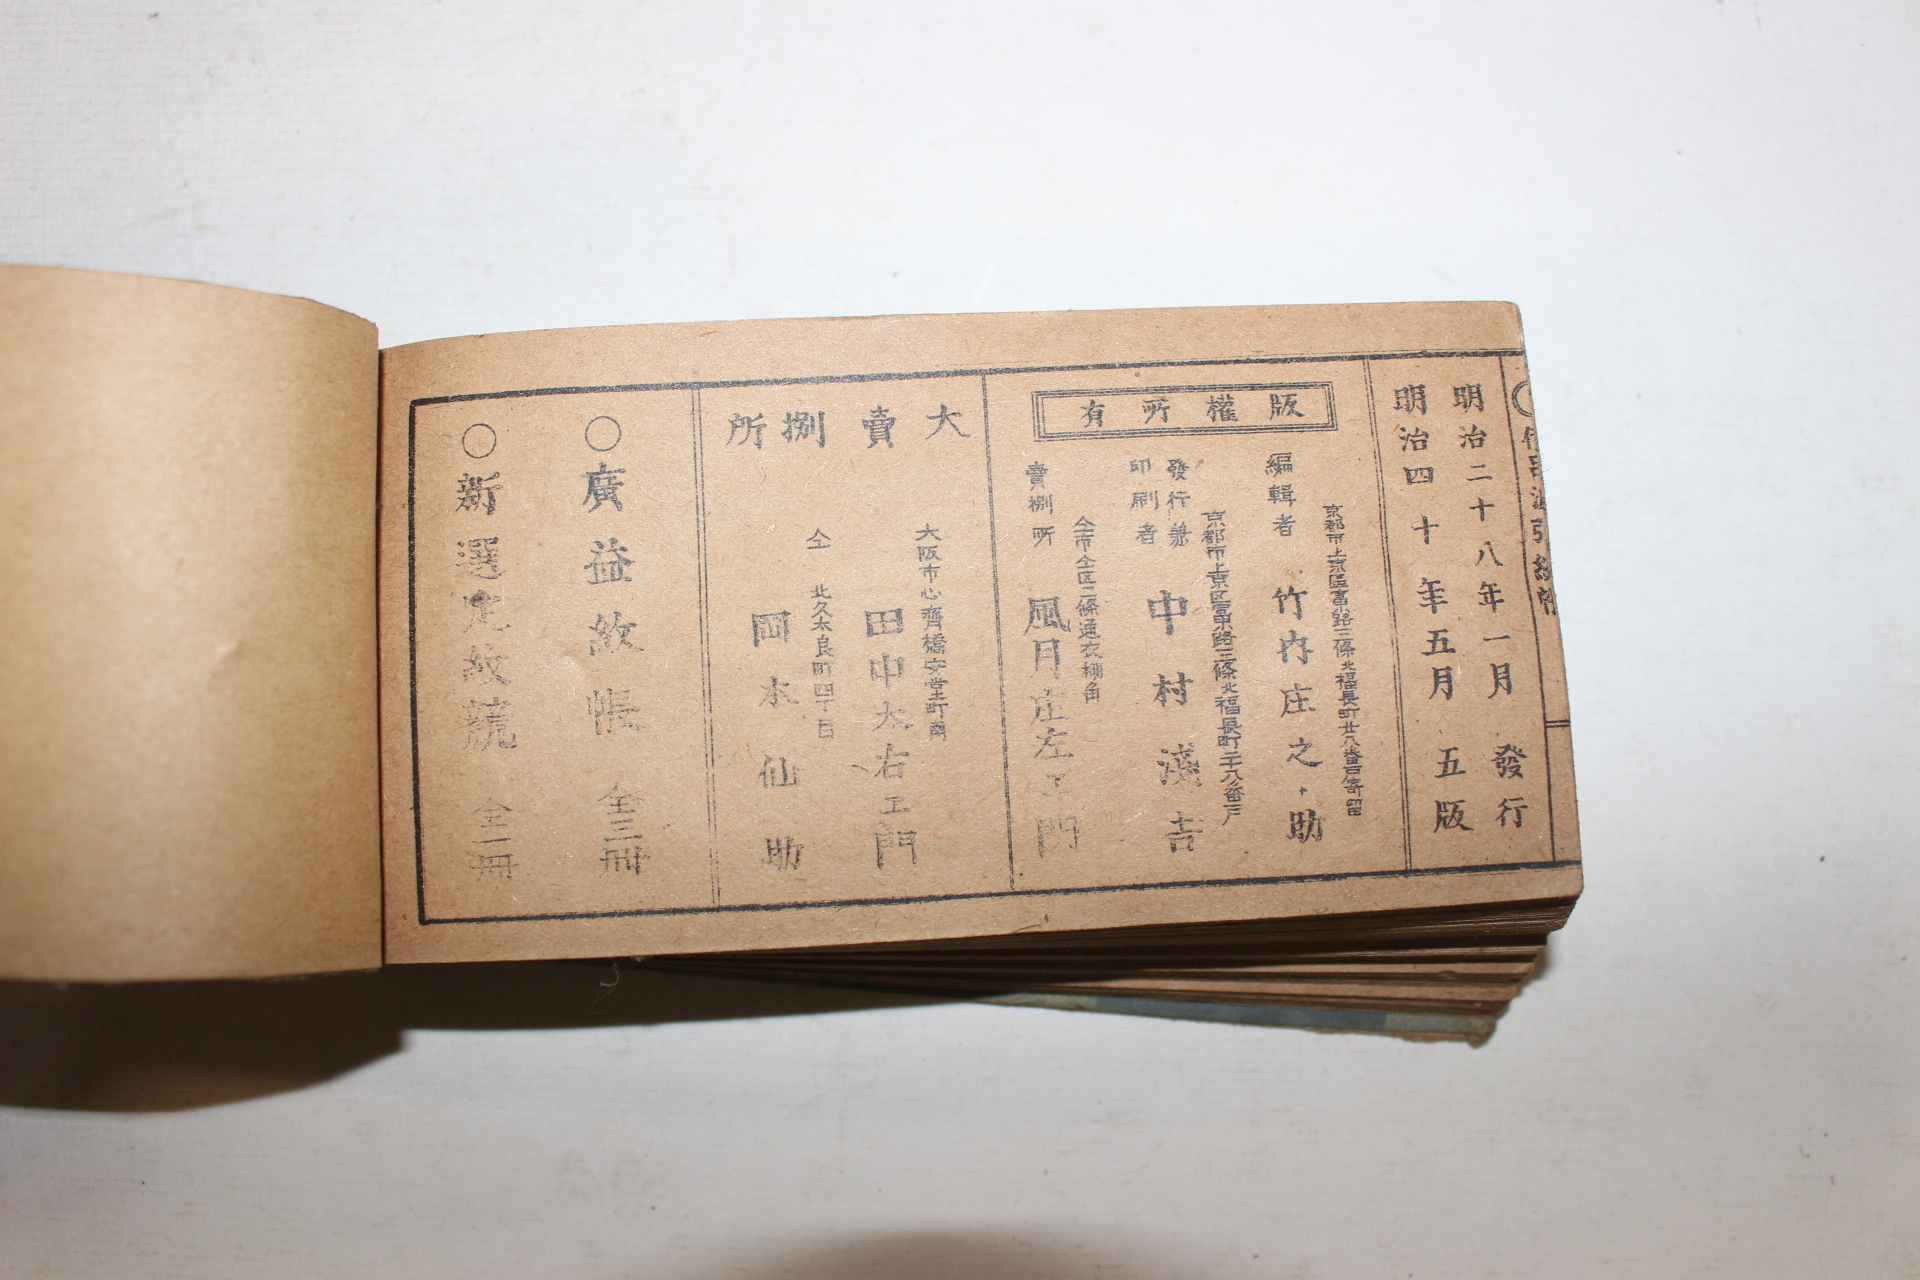 明治二十八年一月 發行
明治四十年五月 五版
版權所有
京都市上京區富小路三條北福長町廿八番戸寄留
編輯者 竹内庄之助
京都市上京区富小路三條北福長町二十八番戸
發行兼
印刷者 中村淺吉
仝市仝区二條通衣棚角
賣捌所 風月庄左エ門
大賣捌所
大阪市心齋橋安堂寺町南
田中太右エ門
仝 北久太良町四丁目
岡本仙助
○廣益紋帳 全三冊
○新選定紋鏡 全一冊